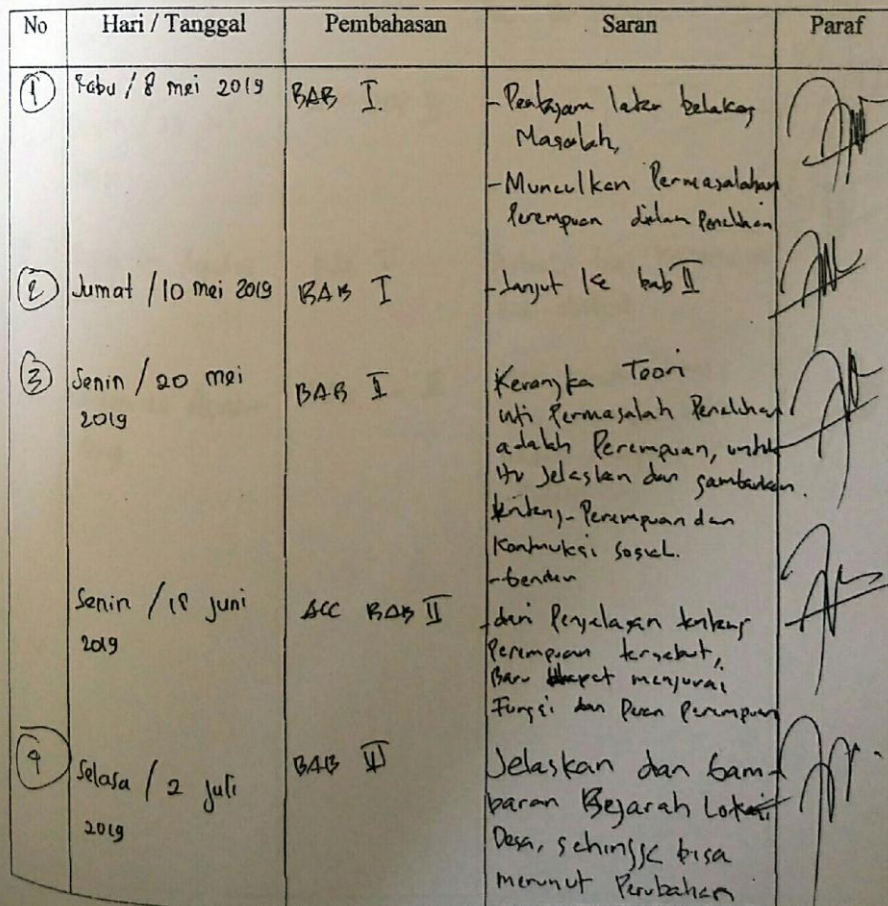 No Hari / Tanggal Pembahasan Saran Paraf
① Rabu / 8 mei 2019 BAB I. - latar belakang
Masalah,
- Munculkan Permasalahan
Perempuan dalam Penelitian
② Jumat / 10 mei 2019 BAB I - Lanjut ke bab II
③ Senin / 20 mei 2019 BAB II Kerangka Teori
inti Permasalah Penelitian
adalah Perempuan, untuk
itu Jelaskan dan gambarkan.
tentang - Perempuan dan
Kontruksi sosial.
- Gender
Senin / 18 juni 2019 ACC BAB II - dari Penjelasan tentang
Perempuan tersebut,
Baru dapat
Fungsi dan Peran Perempuan
4 Selasa / 2 juli 2019 BAB Jelaskan dan Gam-
baran Sejarah Lokasi
Desa, sehingga bisa
Perubahan